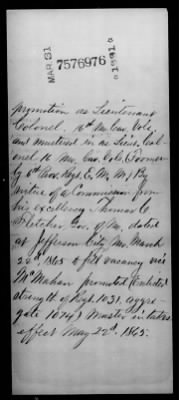 MAR. 21
7576976
1891
promotion as Lieutenant
Colonel. 16th Mo. Cav. Vols
and mustered in as Lieut. Col-
onel 16 Mo. Cav. Vols. Former-
ly 6th Prov. Regt. E. Mo. M. By
virtue of a Commission from
his excellency Thomas C
Fletcher, Gov. of Mo. dated
at Jefferson City, Mo. March
22d 1865 to fill vacancy vice
McMahan promoted Enlisted
strength of Regt. 1031. aggre-
gate 1074. Muster in takes
effect May 22d. 1865.